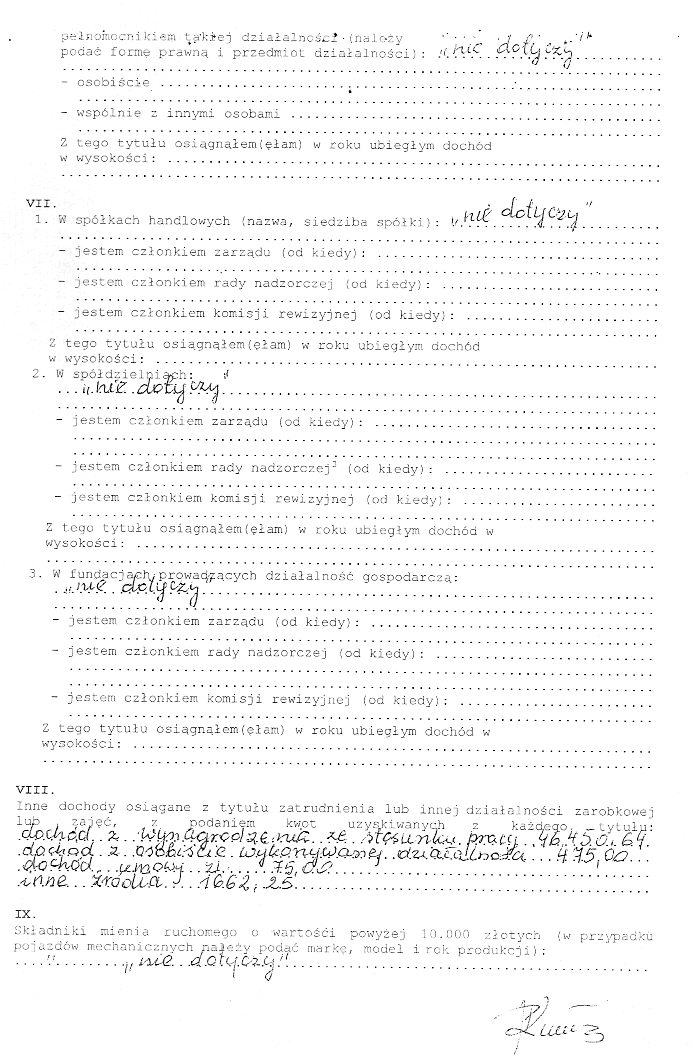 pełnomocnikiem takiej działalności (należy
podać formę prawną i przedmiot działalności): „nie dotyczy"
................................................................
- osobiście ................................................................
................................................................
- wspólnie z innymi osobami ................................................
................................................................
Z tego tytułu osiągnąłem(ęłam) w roku ubiegłym dochód
w wysokości: ................................................................
................................................................
VII.
1. W spółkach handlowych (nazwa, siedziba spółki): „nie dotyczy"
................................................................
- jestem członkiem zarządu (od kiedy): ................................
................................................................
- jestem członkiem rady nadzorczej (od kiedy): ........................
................................................................
- jestem członkiem komisji rewizyjnej (od kiedy): .....................
................................................................
Z tego tytułu osiągnąłem(ęłam) w roku ubiegłym dochód
w wysokości: ................................................................
2. W spółdzielniach:
„nie dotyczy"
................................................................
- jestem członkiem zarządu (od kiedy): ................................
................................................................
................................................................
- jestem członkiem rady nadzorczej³ (od kiedy): .......................
................................................................
- jestem członkiem komisji rewizyjnej (od kiedy): .....................
................................................................
Z tego tytułu osiągnąłem(ęłam) w roku ubiegłym dochód w
wysokości: ................................................................
................................................................
3. W fundacjach prowadzących działalność gospodarczą:
„nie dotyczy"
................................................................
- jestem członkiem zarządu (od kiedy): ................................
................................................................
- jestem członkiem rady nadzorczej (od kiedy): ........................
................................................................
................................................................
- jestem członkiem komisji rewizyjnej (od kiedy): .....................
................................................................
Z tego tytułu osiągnąłem(ęłam) w roku ubiegłym dochód w
wysokości: ................................................................
................................................................
VIII.
Inne dochody osiągane z tytułu zatrudnienia lub innej działalności zarobkowej
lub zajęć, z podaniem kwot uzyskiwanych z każdego tytułu:
dochód z wynagrodzenia ze stosunku pracy 46.450,64
dochód z osobiście wykonywanej działalności 475,00
dochód umowy zl. 75,00
inne źródła 1662,25
IX.
Składniki mienia ruchomego o wartości powyżej 10.000 złotych (w przypadku
pojazdów mechanicznych należy podać markę, model i rok produkcji):
„nie dotyczy"